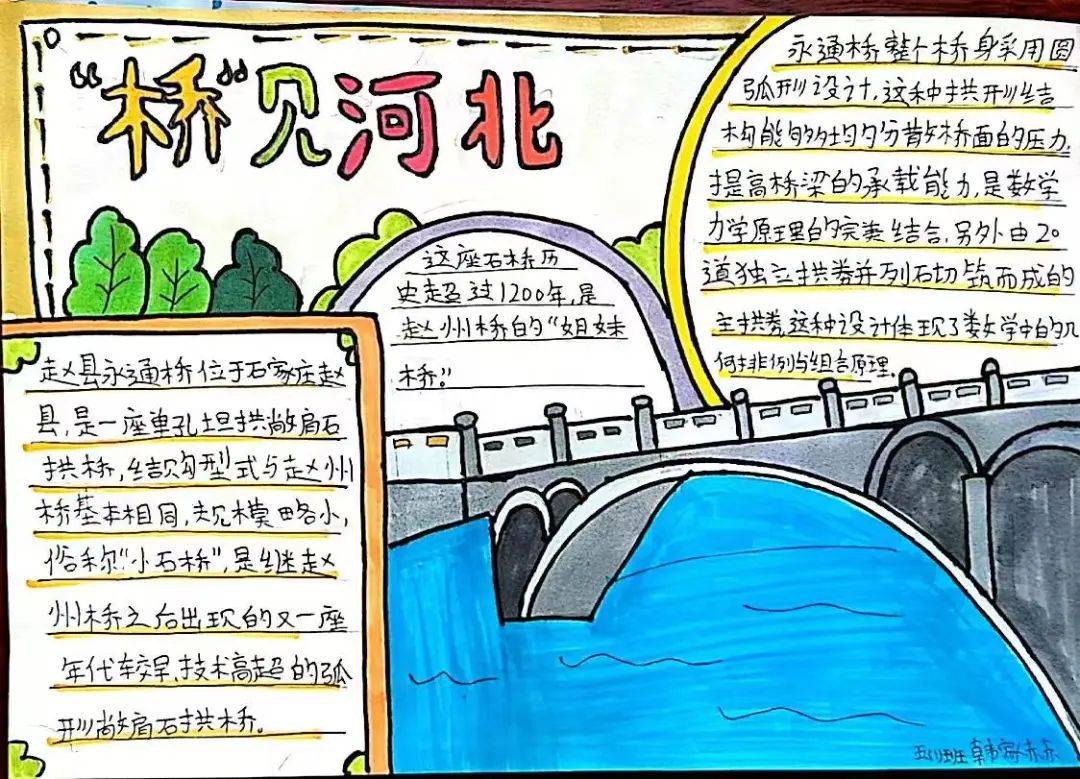 “桥”见河北
赵县永通桥位于石家庄赵
县,是一座单孔坦拱敞肩石
拱桥,结构型式与赵州
桥基本相同,规模略小,
俗称“小石桥”,是继赵
州桥之后出现的又一座
年代较早、技术高超的弧
形敞肩石拱桥。
这座石桥历
史超过1200年,是
赵州桥的“姐妹
桥。”
永通桥整个桥身采用圆
弧形设计,这种拱形结
构能够均匀分散桥面的压力,
提高桥梁的承载能力,是数学
力学原理的完美结合,另外由20
道独立拱券并列石切筑而成的
主拱券,这种设计体现了数学中的几
何排例与组合原理。
五 班 韩家